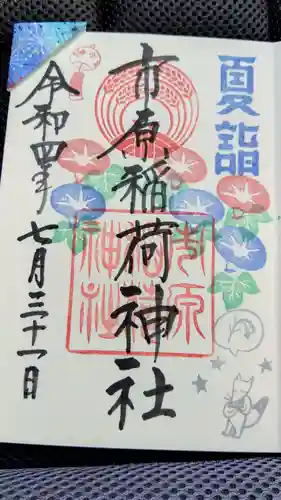 夏詣
市原稲荷神社
令和四年 七月三十一日
市原稲荷神社